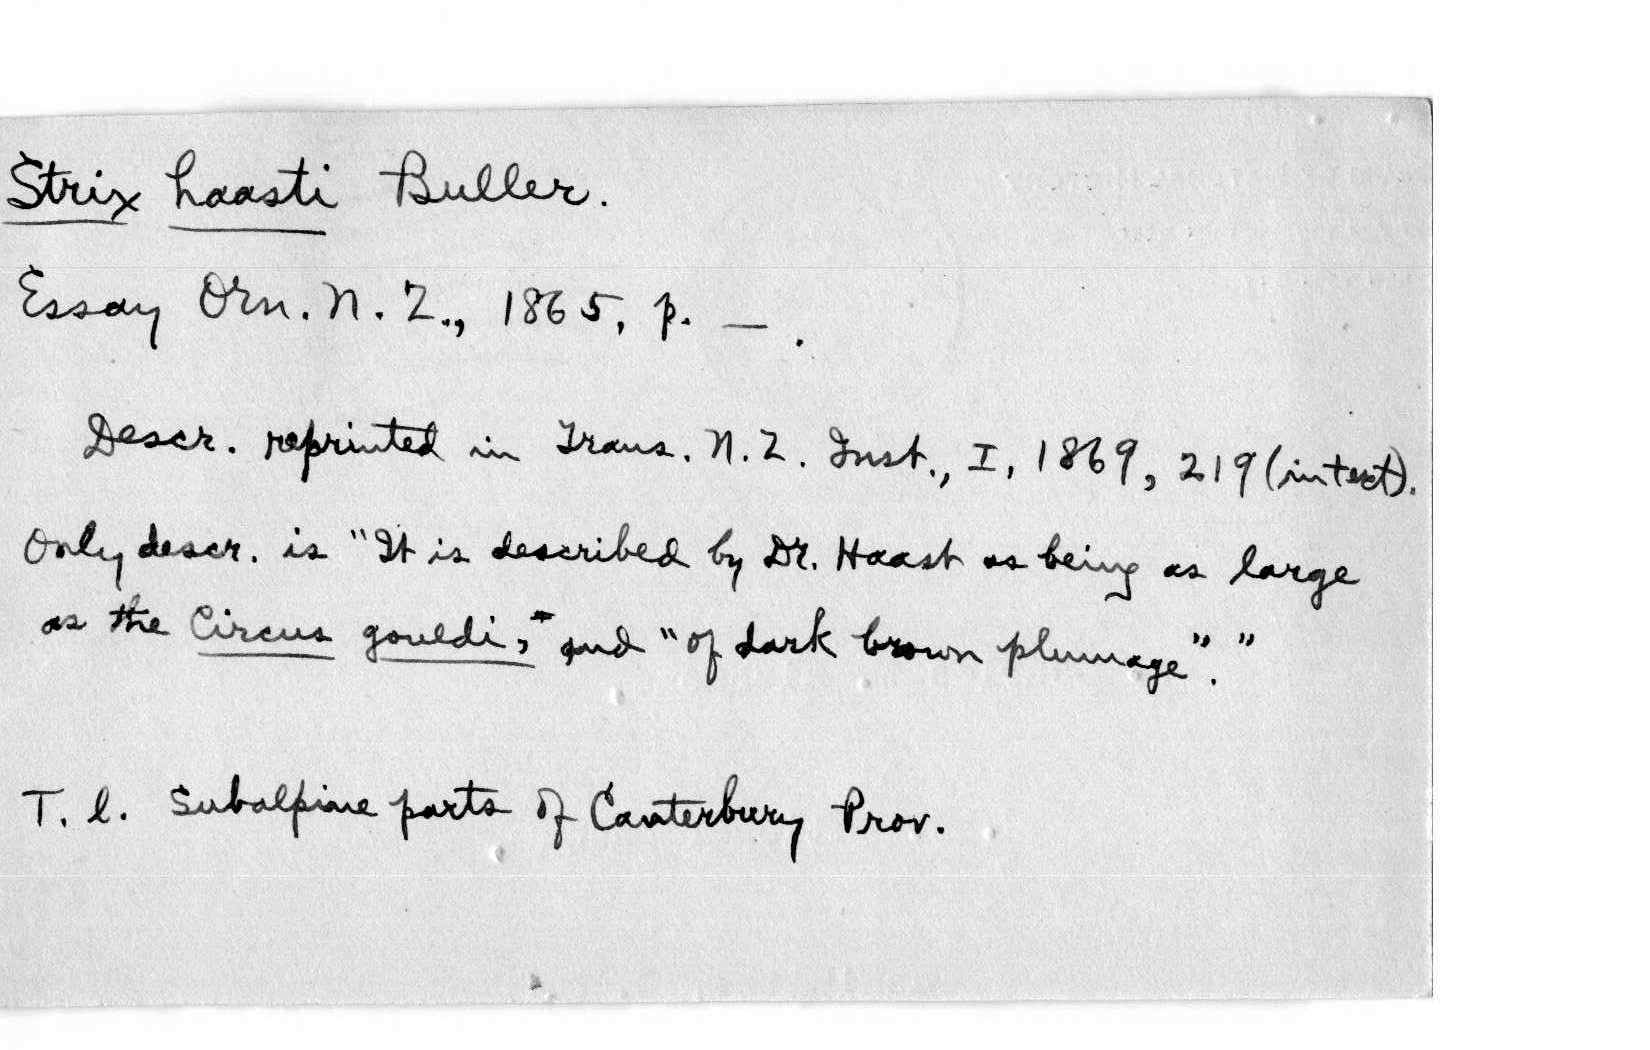 Strix haasti Buller.
Essay Orn. N. Z., 1865, p. — .
Descr. reprinted in Trans. N. Z. Inst., I, 1869, 219 (in text).
Only descr. is "It is described by Dr. Haast as being as large
as the Circus gouldi," and "of dark brown plumage"."
T. l. Subalpine parts of Canterbury Prov.